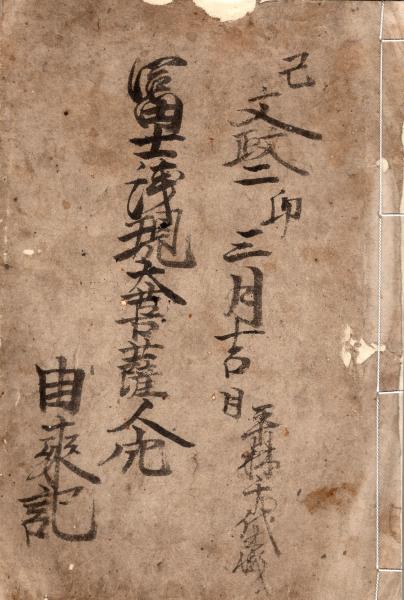 己
文政二卯三月吉日
冨士浅間大菩薩人穴
由来記